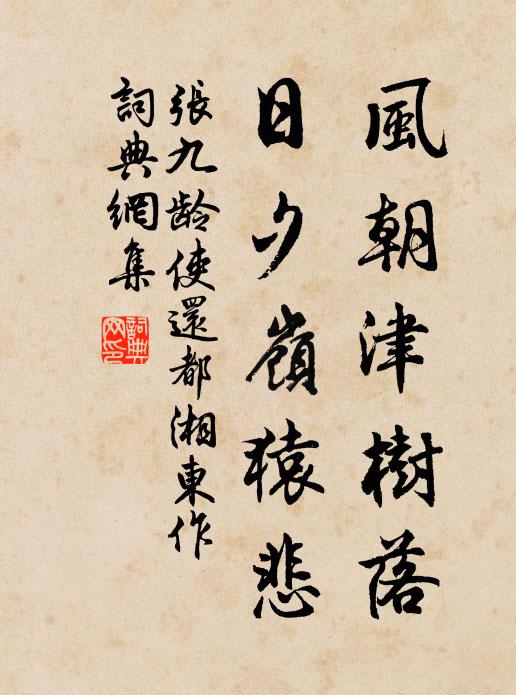 風朝津樹落
日夕嶺猿悲
張九龄使還都湘東作
詞典網集
詞典網印